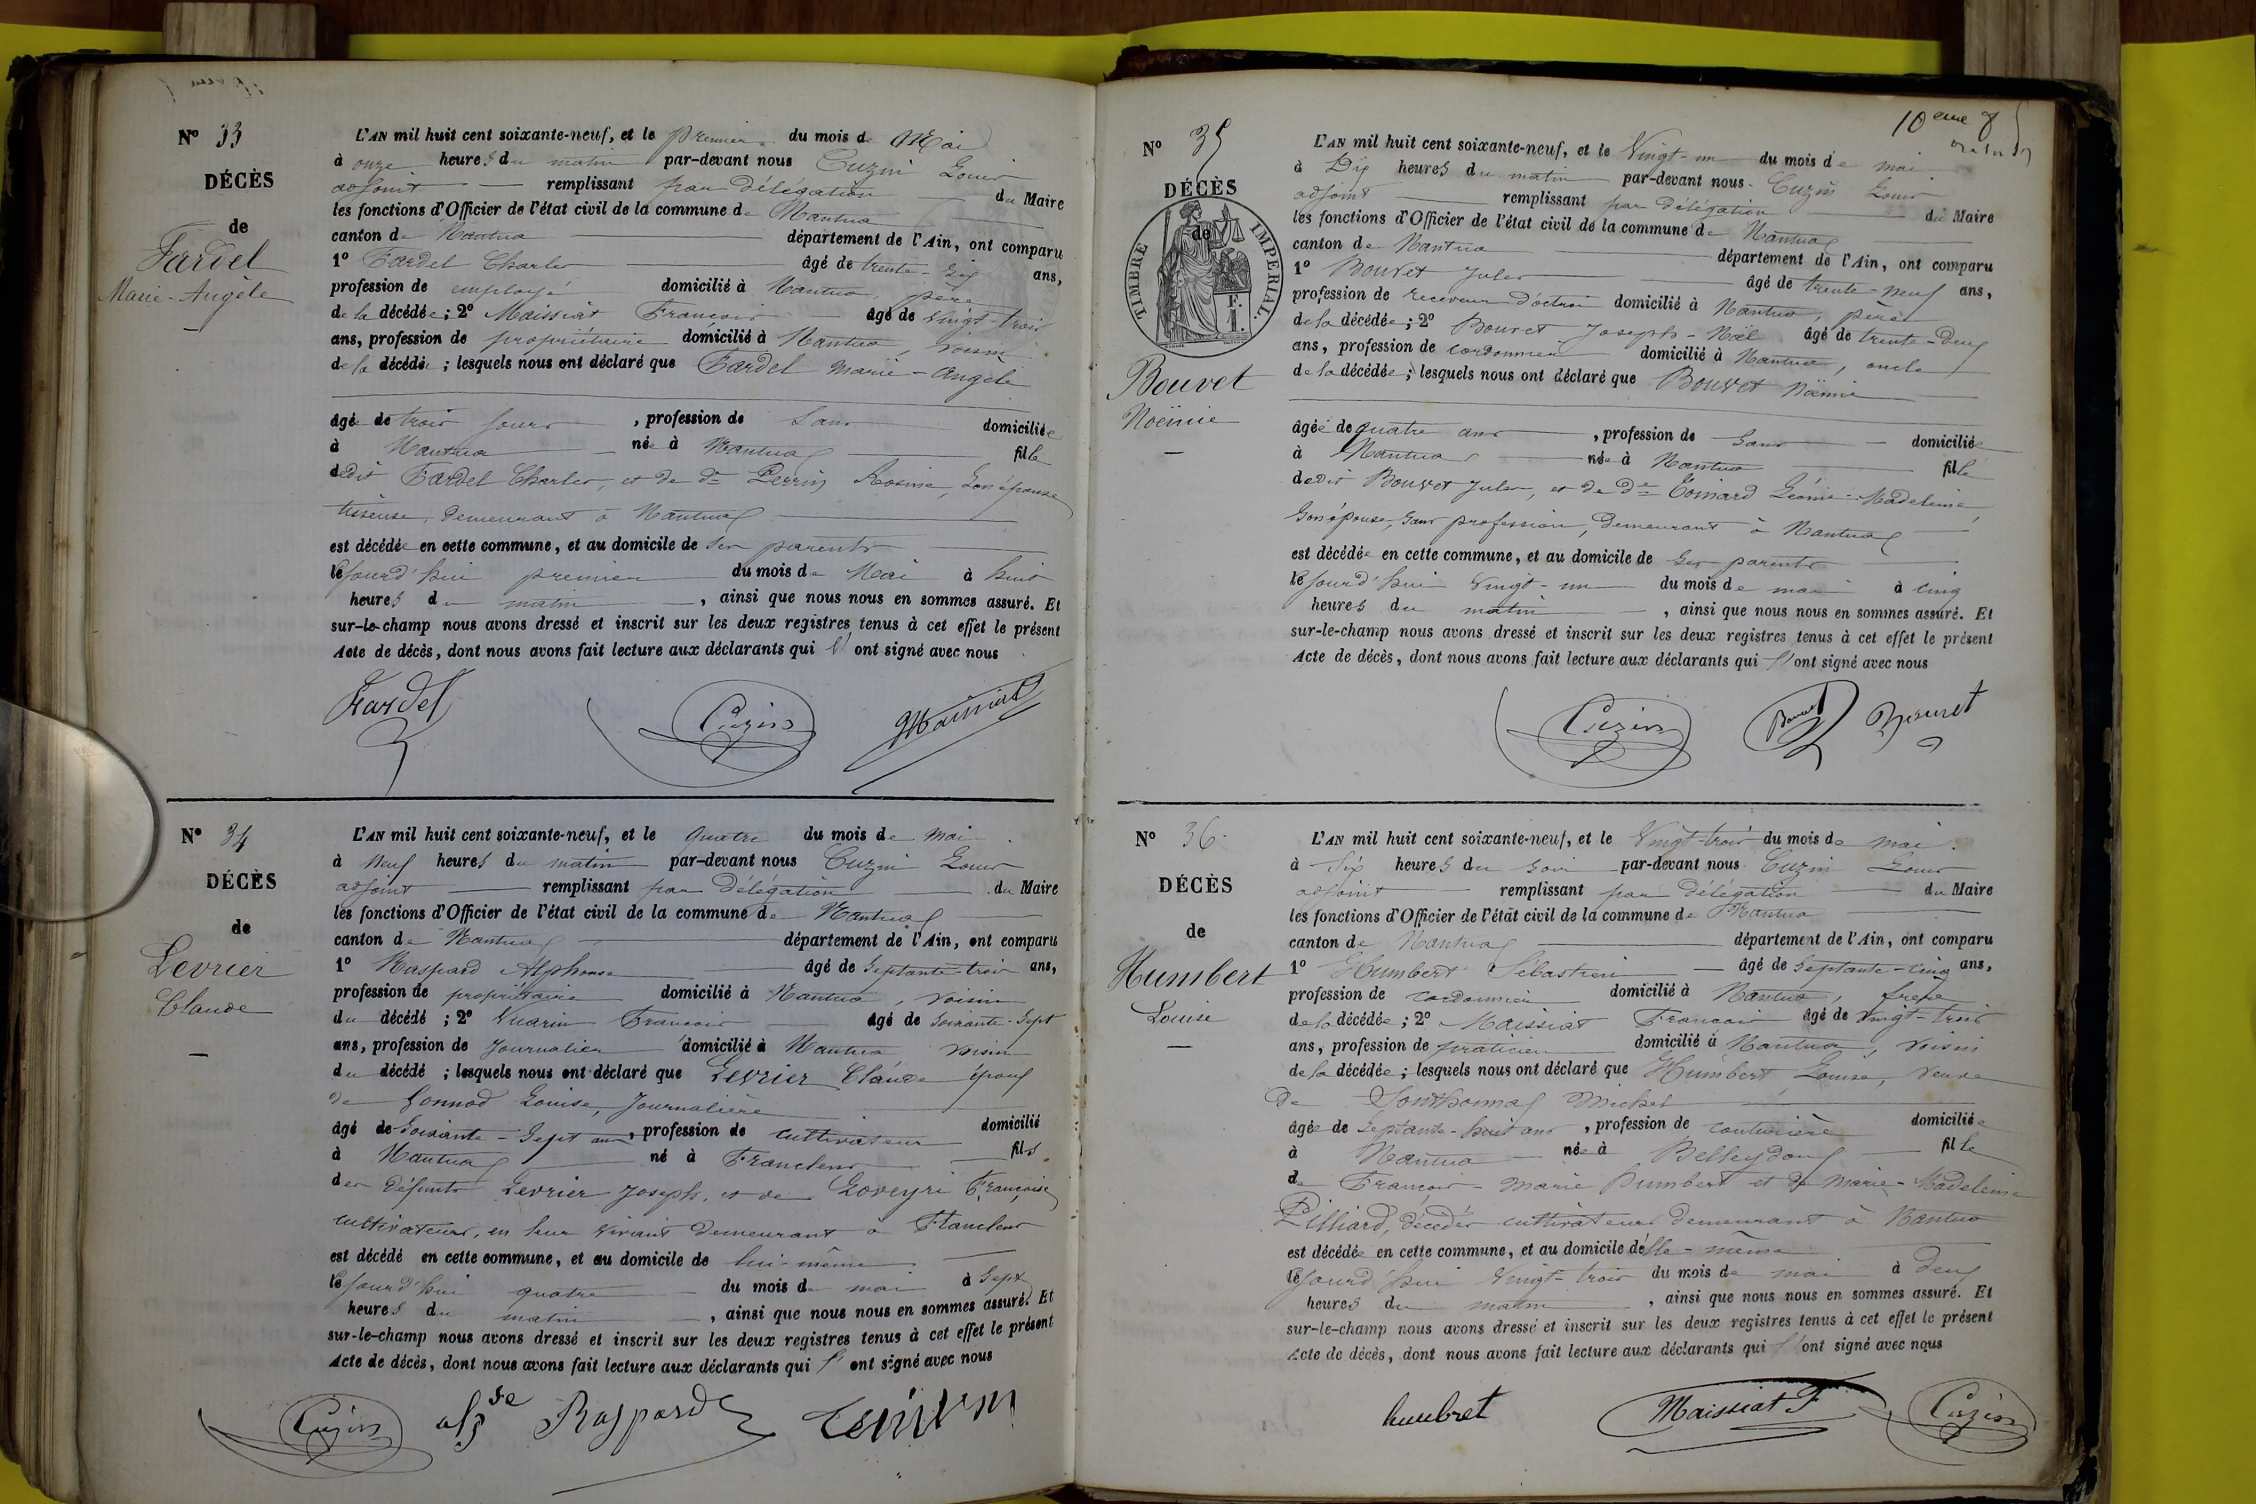 N° 33
DÉCÈS
de
Fardel
Marie-Angèle
L'AN mil huit cent soixante-neuf, et le premier du mois de Mai
à onze heures du matin par-devant nous Cuzin Louis
adjoint remplissant par délégation du Maire
les fonctions d'Officier de l'état civil de la commune de Nantua
canton de Nantua département de l'Ain, ont comparu
1° Fardel Charles âgé de trente-six ans,
profession de employé domicilié à Nantua, père
de la décédée; 2° Maissiat François âgé de vingt-trois
ans, profession de propriétaire domicilié à Nantua, voisin
de la décédée; lesquels nous ont déclaré que Fardel Marie-Angèle
âgé de trois jours, profession de sans domiciliée
à Nantua née à Nantua fille
dedit Fardel Charles, et de de Perrin Rosine, son épouse
tisseuse, demeurant à Nantua
est décédée en cette commune, et au domicile de ses parents
lejourd'hui premier du mois de Mai à huit
heures du matin, ainsi que nous nous en sommes assuré. Et
sur-le-champ nous avons dressé et inscrit sur les deux registres tenus à cet effet le présent
Acte de décès, dont nous avons fait lecture aux déclarants qui l'ont signé avec nous
Fardel Cuzin Maissiat
N° 34
DÉCÈS
de
Levrier
Claude
L'AN mil huit cent soixante-neuf, et le quatre du mois de mai
à neuf heures du matin par-devant nous Cuzin Louis
adjoint remplissant par délégation du Maire
les fonctions d'Officier de l'état civil de la commune de Nantua
canton de Nantua département de l'Ain, ont comparu
1° Raspard Alphonse âgé de septante-trois ans,
profession de propriétaire domicilié à Nantua, voisin
du décédé; 2° Vuarin François âgé de soixante-sept
ans, profession de journalier domicilié à Nantua, voisin
du décédé; lesquels nous ont déclaré que Levrier Claude époux
de Gonnod Louise, journalière
âgé de soixante-sept ans, profession de cultivateur domicilié
à Nantua né à Franclens fils
des défunts Levrier Joseph, et de Françoise
cultivateurs, en leur vivant demeurant à Franclens
est décédé en cette commune, et au domicile de lui-même
lejourd'hui quatre du mois de mai à sept
heures du matin, ainsi que nous nous en sommes assuré. Et
sur-le-champ nous avons dressé et inscrit sur les deux registres tenus à cet effet le présent
Acte de décès, dont nous avons fait lecture aux déclarants qui l'ont signé avec nous
Cuzin alpse Raspard
10eme
N° 35
DÉCÈS
de
TIMBRE IMPERIAL
Bouvet
Noëmie
L'AN mil huit cent soixante-neuf, et le vingt-un du mois de mai
à Dix heures du matin par-devant nous Cuzin Louis
adjoint remplissant par délégation du Maire
les fonctions d'Officier de l'état civil de la commune de Nantua
canton de Nantua département de l'Ain, ont comparu
1° Bouvet Jules âgé de trente-neuf ans,
profession de receveur d'octroi domicilié à Nantua, père
de la décédée; 2° Bouvet Joseph-Noël âgé de trente-deux
ans, profession de cordonnier domicilié à Nantua, oncle
de la décédée; lesquels nous ont déclaré que Bouvet Noëmie
âgée de quatre ans, profession de sans domiciliée
à Nantua née à Nantua fille
dedit Bouvet Jules, et de de Coinard Léonie-Madeleine,
son épouse, sans profession, demeurant à Nantua
est décédée en cette commune, et au domicile de ses parents
lejourd'hui vingt-un du mois de mai à cinq
heures du matin, ainsi que nous nous en sommes assuré. Et
sur-le-champ nous avons dressé et inscrit sur les deux registres tenus à cet effet le présent
Acte de décès, dont nous avons fait lecture aux déclarants qui l'ont signé avec nous
Cuzin Bouvet Bouvet
N° 36
DÉCÈS
de
Humbert
Louise
L'AN mil huit cent soixante-neuf, et le vingt-trois du mois de mai
à six heures du soir par-devant nous Cuzin Louis
adjoint remplissant par délégation du Maire
les fonctions d'Officier de l'état civil de la commune de Nantua
canton de Nantua département de l'Ain, ont comparu
1° Humbert Sébastien âgé de septante-cinq ans,
profession de cordonnier domicilié à Nantua, frère
de la décédée; 2° Maissiat François âgé de vingt-trois
ans, profession de praticien domicilié à Nantua, voisin
de la décédée; lesquels nous ont déclaré que Humbert Louise, veuve
de Sonthonnax Michel
âgée de septante-huit ans, profession de couturière domiciliée
à Nantua née à Belleydoux fille
de François-Marie Humbert et de Marie-Madeleine
Pilliard, décédés cultivateurs demeurant à Nantua
est décédée en cette commune, et au domicile d'elle-même
lejourd'hui vingt-trois du mois de mai à deux
heures du matin, ainsi que nous nous en sommes assuré. Et
sur-le-champ nous avons dressé et inscrit sur les deux registres tenus à cet effet le présent
Acte de décès, dont nous avons fait lecture aux déclarants qui l'ont signé avec nous
humbret Maissiat F Cuzin